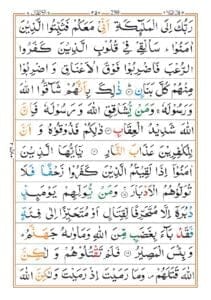 رَبُّكَ اِلَى الْمَلٰٓئِكَةِ اَنِّيْ مَعَكُمْ فَثَبِّتُوا الَّذِيْنَ
اٰمَنُوْا ؕ سَاُلْقِيْ فِيْ قُلُوْبِ الَّذِيْنَ كَفَرُوا
الرُّعْبَ فَاضْرِبُوْا فَوْقَ الْاَعْنَاقِ وَاضْرِبُوْا
مِنْهُمْ كُلَّ بَنَانٍ ؕ ذٰلِكَ بِاَنَّهُمْ شَآقُّوا اللّٰهَ
وَرَسُوْلَهٗ ۚ وَمَنْ يُّشَاقِقِ اللّٰهَ وَرَسُوْلَهٗ فَاِنَّ
اللّٰهَ شَدِيْدُ الْعِقَابِ ذٰلِكُمْ فَذُوْقُوْهُ وَاَنَّ
لِلْكٰفِرِيْنَ عَذَابَ النَّارِ يٰۤاَيُّهَا الَّذِيْنَ
اٰمَنُوْۤا اِذَا لَقِيْتُمُ الَّذِيْنَ كَفَرُوْا زَحْفًا فَلَا
تُوَلُّوْهُمُ الْاَدْبَارَ وَمَنْ يُّوَلِّهِمْ يَوْمَئِذٍ
دُبُرَهٗۤ اِلَّا مُتَحَرِّفًا لِّقِتَالٍ اَوْ مُتَحَيِّزًا اِلٰى فِئَةٍ
فَقَدْ بَآءَ بِغَضَبٍ مِّنَ اللّٰهِ وَمَاْوٰىهُ جَهَنَّمُ ؕ
وَبِئْسَ الْمَصِيْرُ فَلَمْ تَقْتُلُوْهُمْ وَلٰكِنَّ
اللّٰهَ قَتَلَهُمْ ۪ وَمَا رَمَيْتَ اِذْ رَمَيْتَ وَلٰكِنَّ اللّٰهَ